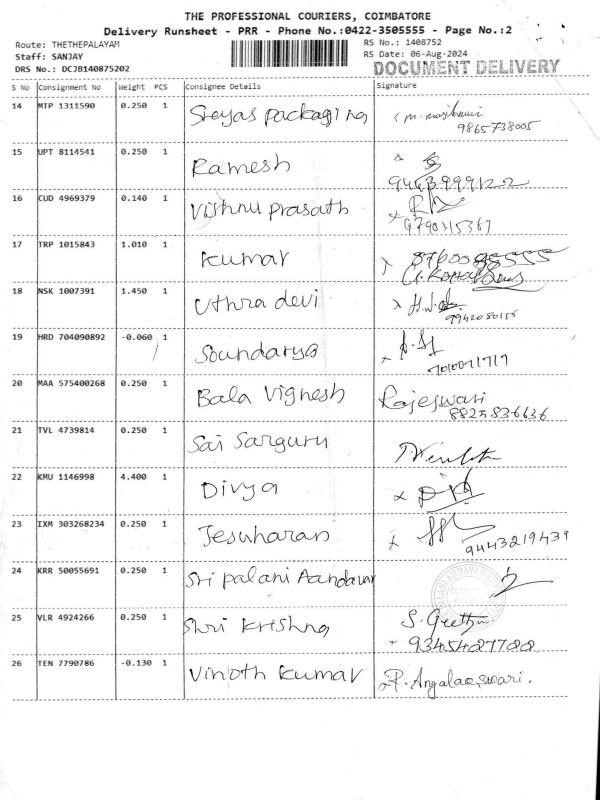 THE PROFESSIONAL COURIERS, COIMBATORE
Delivery Runsheet - PRR - Phone No.:0422-3505555 - Page No.:2
Route: THETHEPALAYAM
Staff: SANJAY
DRS No.: DCJB140875202
RS No.: 1408752
RS Date: 06-Aug-2024
DOCUMENT DELIVERY
S No Consignment No Weight PCS Consignee Details Signature
14 MTP 1311590 0.250 1 Sreyas packaging
9865738005
15 UPT 8114541 0.250 1 Ramesh
9443999122
16 CUD 4969379 0.140 1 Vishnu prasath
9790315367
17 TRP 1015843 1.010 1 kumar
18 NSK 1007391 1.450 1 Uthra devi
9942050155
19 HRD 704090892 -0.060 1 Soundarya
7010071717
20 MAA 575400268 0.250 1 Bala Vignesh Rajeswari
8825836636
21 TVL 4739814 0.250 1 Sai Sarguru
22 KMU 1146998 4.400 1 Divya
23 IXM 303268234 0.250 1 Jesuharan
9443219439
24 KRR 50055691 0.250 1 Sri palani Aandavar
25 VLR 4924266 0.250 1 Shri krishna S. Geetha
9345427722
26 TEN 7790786 -0.130 1 Vinoth kumar P. Angalaeswari.